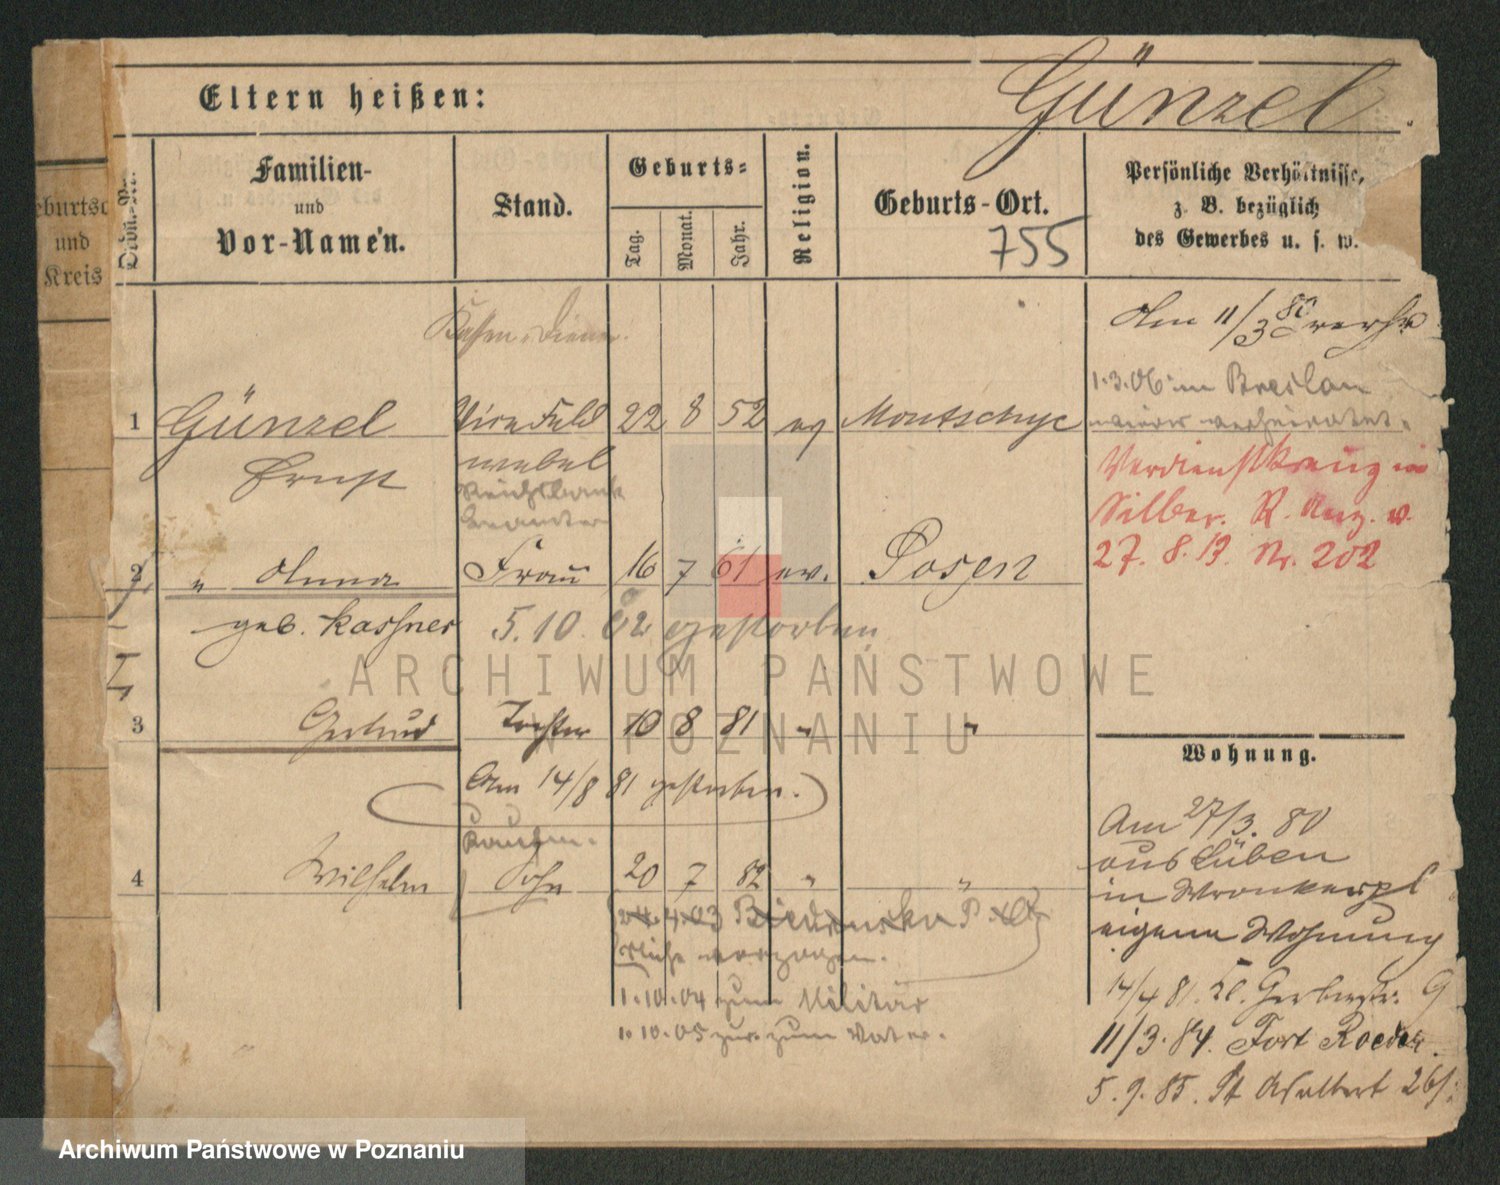 Eltern heißen:
Günzel.
eburtso
und
Kreis
Ordn.-Nr.
Familien-
und
Vor-Namen.
Stand.
Geburts-
Tag.
Monat.
Jahr.
Religion.
Geburts-Ort.
755
Persönliche Verhältnisse,
z. B. bezüglich
des Gewerbes u. s. w.
Kassen-Diener.
Am 11/3 80 verh
1.3.06 in Breslau
wieder verheiratet.
1 Günzel Vice Feld 22 8 52 ev Montschyc
Ernst webel
Reichsbank
Beamter
Verdienstkreuz in
Silber. R. Anz. v.
27. 8. 13. Nr. 202
2 " Anna Frau 16 7 61 ev. Posen
geb. Kassner 5. 10. 02 gestorben
3 Gertrud Tochter 10 8 81 " "
Am 14/8 81 gestorben.
Wohnung.
Kaufm.
4 Wilhelm Sohn 20 7 82 " "
24. 4. 03
verzogen.
1.10.04 zum Militär
1.10.05 zur. zum Vater.
Am 27/3. 80
aus Lüben
in Wronkerpl
eigene Wohnung
14/4 81. Kl. Gerberstr. 9
11/3. 84. Fort Roeder.
5. 9. 85. St Adalbert 26/
ARCHIWUM PAŃSTWOWE
W POZNANIU
Archiwum Państwowe w Poznaniu